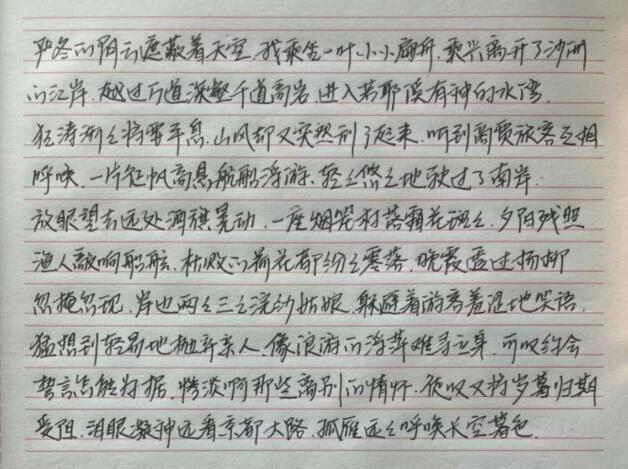 严冬的阴云遮蔽着天空.我乘坐一叶小小扁舟.乘兴离开了沙洲
的江岸.越过万道深壑千道高岩.进入若耶溪有神的水湾.
狂涛渐々将要平息.山风却又突然刮了起来.听到商贾旅客互相
呼唤.一片征帆高悬航船浮游.轻々悠々地驶过了南岸.
放眼望去远处酒旗晃动.一座烟笼村落霜花斑々.夕阳残照
渔人敲响船舷.枯败的荷花都纷々零落.晚霞透过杨柳
忽掩忽现.岸边两々三々浣纱姑娘.躲避着游客羞涩地笑语.
猛想到轻易地抛弃亲人.像浪游的浮萍难寻立身.可叹约会
誓言怎能为据.惨淡啊那些离别的情怀.徒叹又将岁暮归期
受阻.泪眼凝神远看京都大路.孤雁远々呼唤长空暮色.